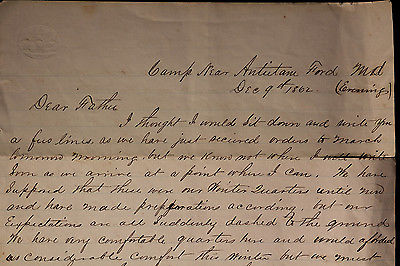 Camp Near Antietam Ford Md
Dec 9th 1862. (Evening)
Dear Father
I thought I would sit down and write you
a few lines, as we have just recieved orders to March
tomorrow morning but we know not where I will write
soon as we arrive at a point where I can. We have
supposed that these were our Winter Quarters until now
and have made preparations according but our
Expectations are all Suddenly dashed to the ground
We have very comfortable quarters here and would afforded
as Considerable Comfort this Winter but we must